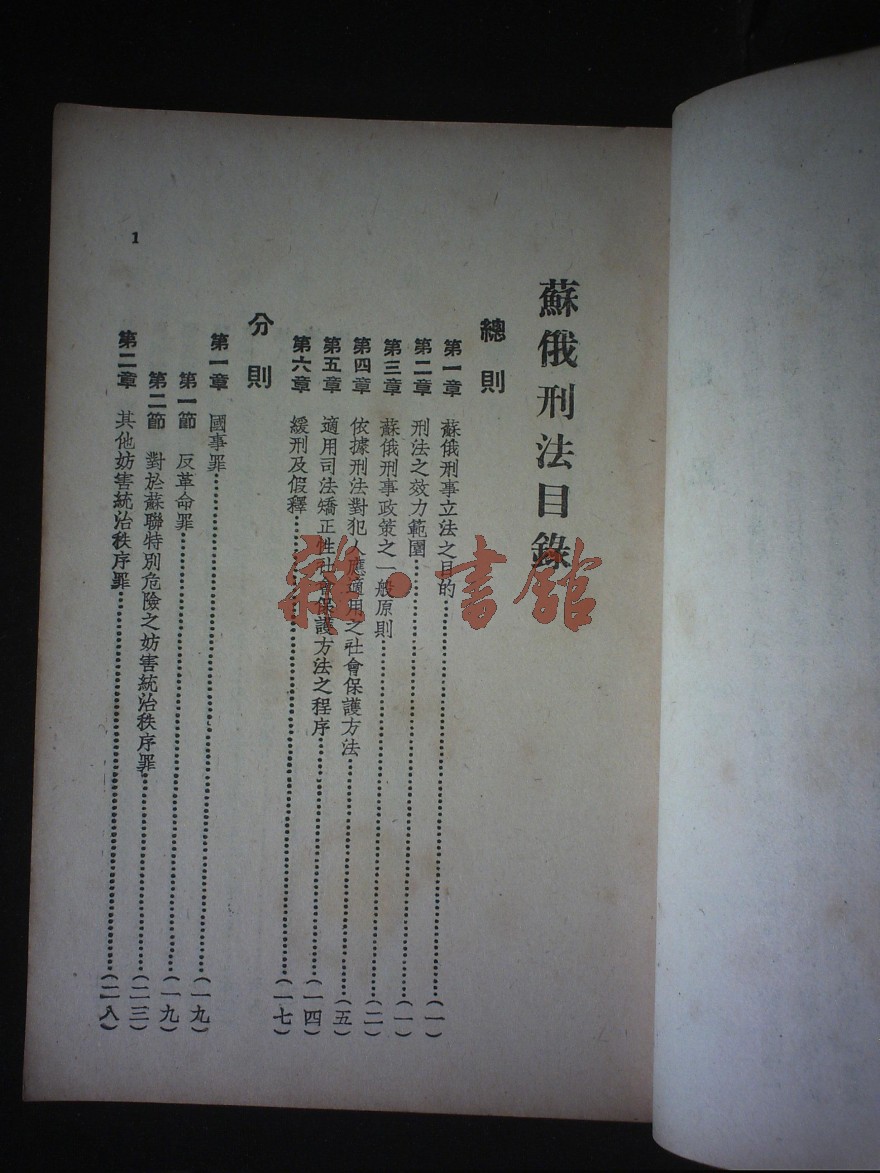 蘇俄刑法目錄
總則
第一章 蘇俄刑事立法之目的……(一)
第二章 刑法之效力範圍……(一)
第三章 蘇俄刑事政策之一般原則……(二)
第四章 依據刑法對犯人應適用之社會保護方法……(五)
第五章 適用司法矯正性社會保護方法之程序……(一四)
第六章 緩刑及假釋……(一七)
分則
第一章 國事罪……(一九)
第一節 反革命罪……(一九)
第二節 對於蘇聯特別危險之妨害統治秩序罪……(二三)
第二章 其他妨害統治秩序罪……(二八)
1
雜·書館